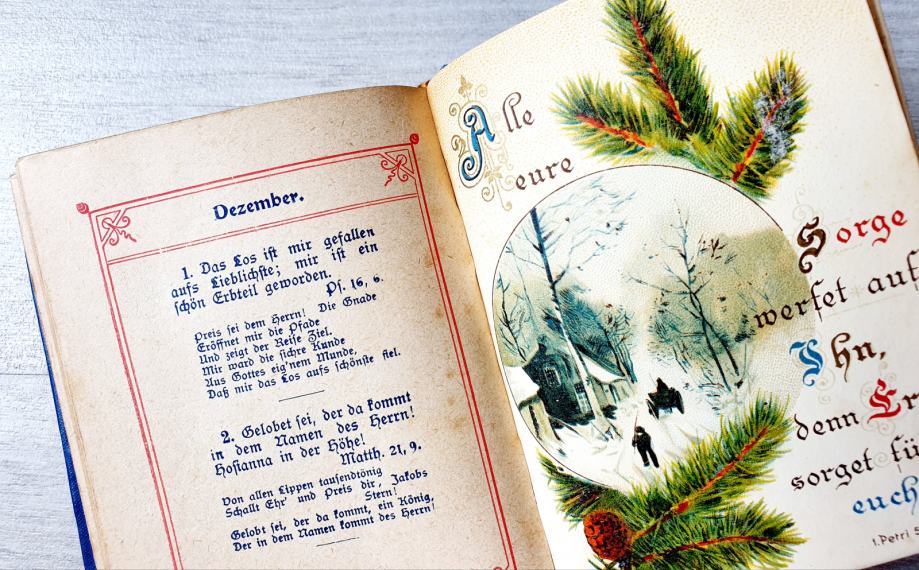 Dezember.
1. Das Los ist mir gefallen
aufs Lieblichste; mir ist ein
schön Erbteil geworden.
Ps. 16, 6.
Preis sei dem Herrn! Die Gnade
Eröffnet mir die Pfade
Und zeigt der Reise Ziel.
Mir ward die sichre Kunde
Aus Gottes eig'nem Munde,
Daß mir das Los aufs schönste fiel.
2. Gelobet sei, der da kommt
in dem Namen des Herrn!
Hosianna in der Höhe!
Matth. 21, 9.
Von allen Lippen tausendtönig
Schallt Ehr' und Preis dir, Jakobs
Stern!
Gelobt sei, der da kommt, ein König,
Der in dem Namen kommt des Herrn!
Alle
eure
Sorge
werfet auf
Ihn,
denn Er
sorget fü
euch
1.Petri 5